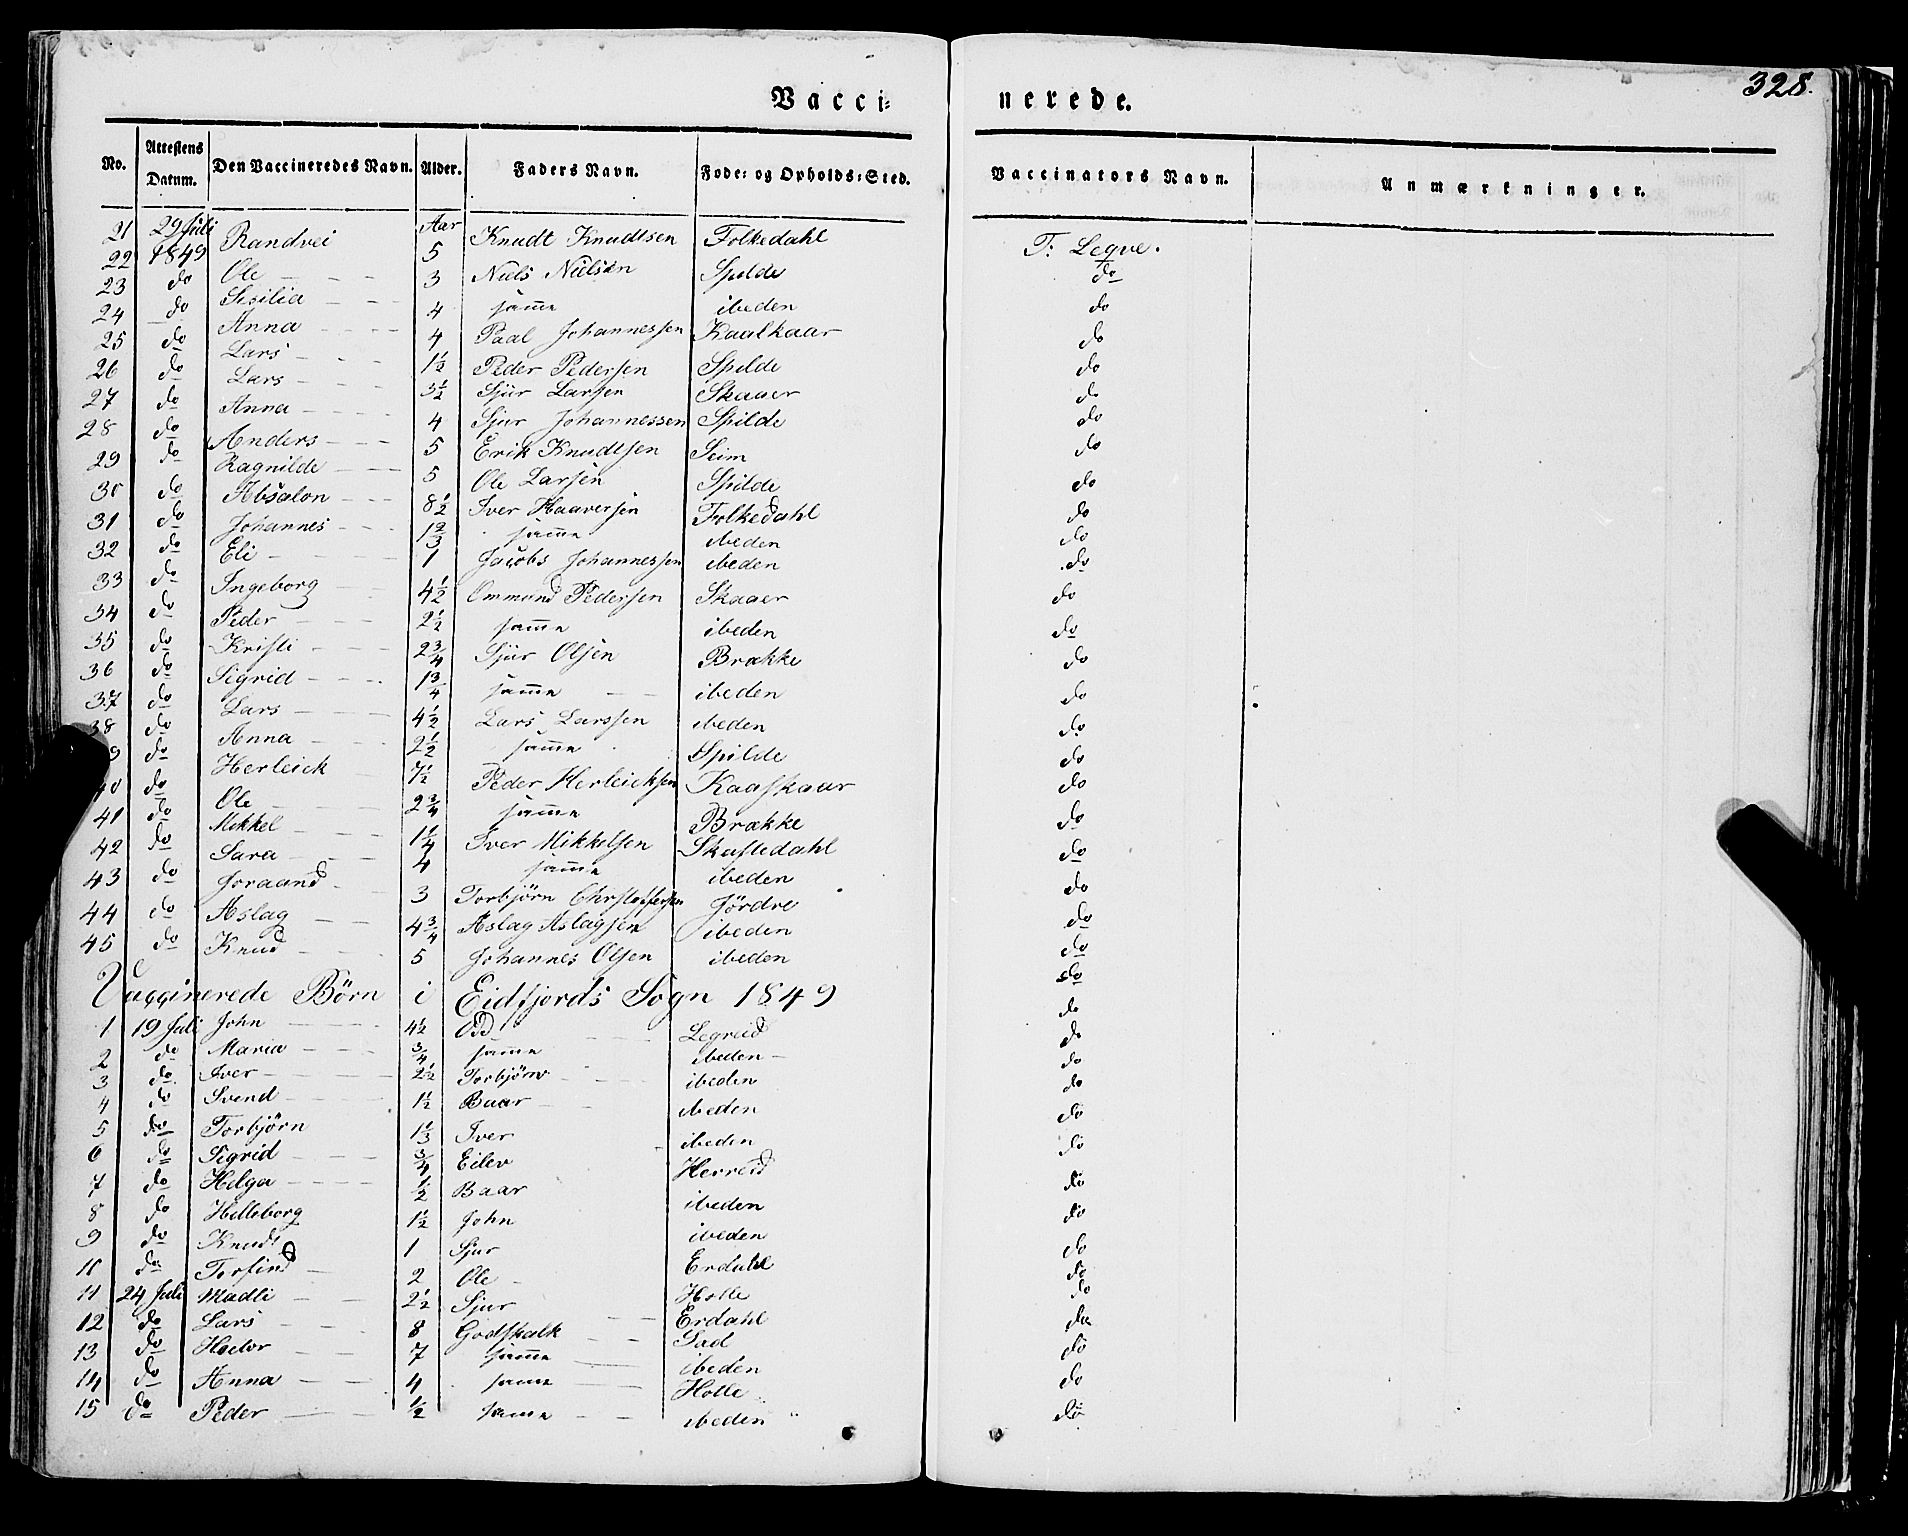 328.
Vacci= nerede.
No. Attestens Datum. Den Vaccineredes Navn. Alder. Faders Navn. Føde= og Opholds=Sted. Vaccinators Navn. Anmærkninger.
21 29 Juli 1849 Randvei Aar 5 Knudt Knudtsen Folkedahl T: Legve.
22 do Ole 3 Niels Nielsen Spilde do
23 do Sesilia 4 samme ibeden do
24 do Anna 4 Paal Johannessen Kaalkaar do
25 do Lars 1½ Peder Pedersen Spilde do
26 do Lars 3½ Sjur Larsen Skaaer do
27 do Anna 4 Sjur Johannessen Spilde do
28 do Anders 5 Erik Knudtsen Seim do
29 do Ragnilde 5 Ole Larsen Spilde do
30 do Absalon 8½ Iver Haaversen Folkedahl do
31 do Johannes 1⅔ samme ibeden do
32 do Eli 1 Jacobs Johannessen ibeden do
33 do Ingeborg 4½ Ommund Pedersen Skaaer do
34 do Peder 2½ samme ibeden do
35 do Kristi 2¾ Sjur Olsen Brække do
36 do Sigrid 1¾ samme ibeden do
37 do Lars 4½ Lars Larssen ibeden do
38 do Anna 2½ samme Spilde do
9 do Herleick 7½ Peder Herleicksen Kaaskaar do
40 do Ole 2¾ samme Brække do
41 do Mikkel 1¼ Iver Mikkelsen Skaftedahl do
42 do Sara 4 samme ibeden do
43 do Joraand 3 Torbjörn Christoffersen Jördre do
44 do Aslag 4¾ Aslag Aslagsen ibeden do
45 do Knud 5 Johannes Olsen ibeden do
Vagginerede Börn i Eidfjords Sogn 1849 do
1 19 Juli John 4½ Odd Legreid do
2 do Maria ¾ samme ibeden do
3 do Iver 2½ Torbjörn ibeden do
4 do Svend 1½ Baar ibeden do
5 do Torbjörn 1⅓ Iver ibeden do
6 do Sigrid ¾ Eilev Herreid do
7 do Helga ½ Baar ibeden do
8 do Helleborg 1½ John ibeden do
9 do Knudt 1 Sjur Erdahl do
10 do Torfind 2 Ole Holle do
11 24 Juli Madli 2½ Sjur Erdahl do
12 do Lars 8 Godskalk Sad do
13 do 7 samme ibeden do
14 do Anna 4 samme Holle do
15 do Peder ½ samme ibeden do